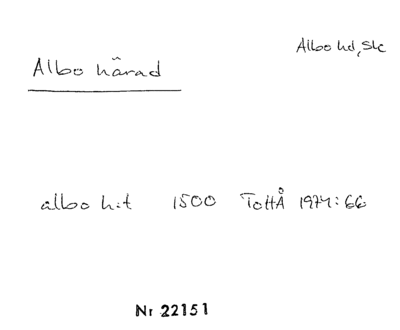 Albo hd, Sk
Albo härad
albo h:t 1500 TottÅ 1974:66
Nr 22151